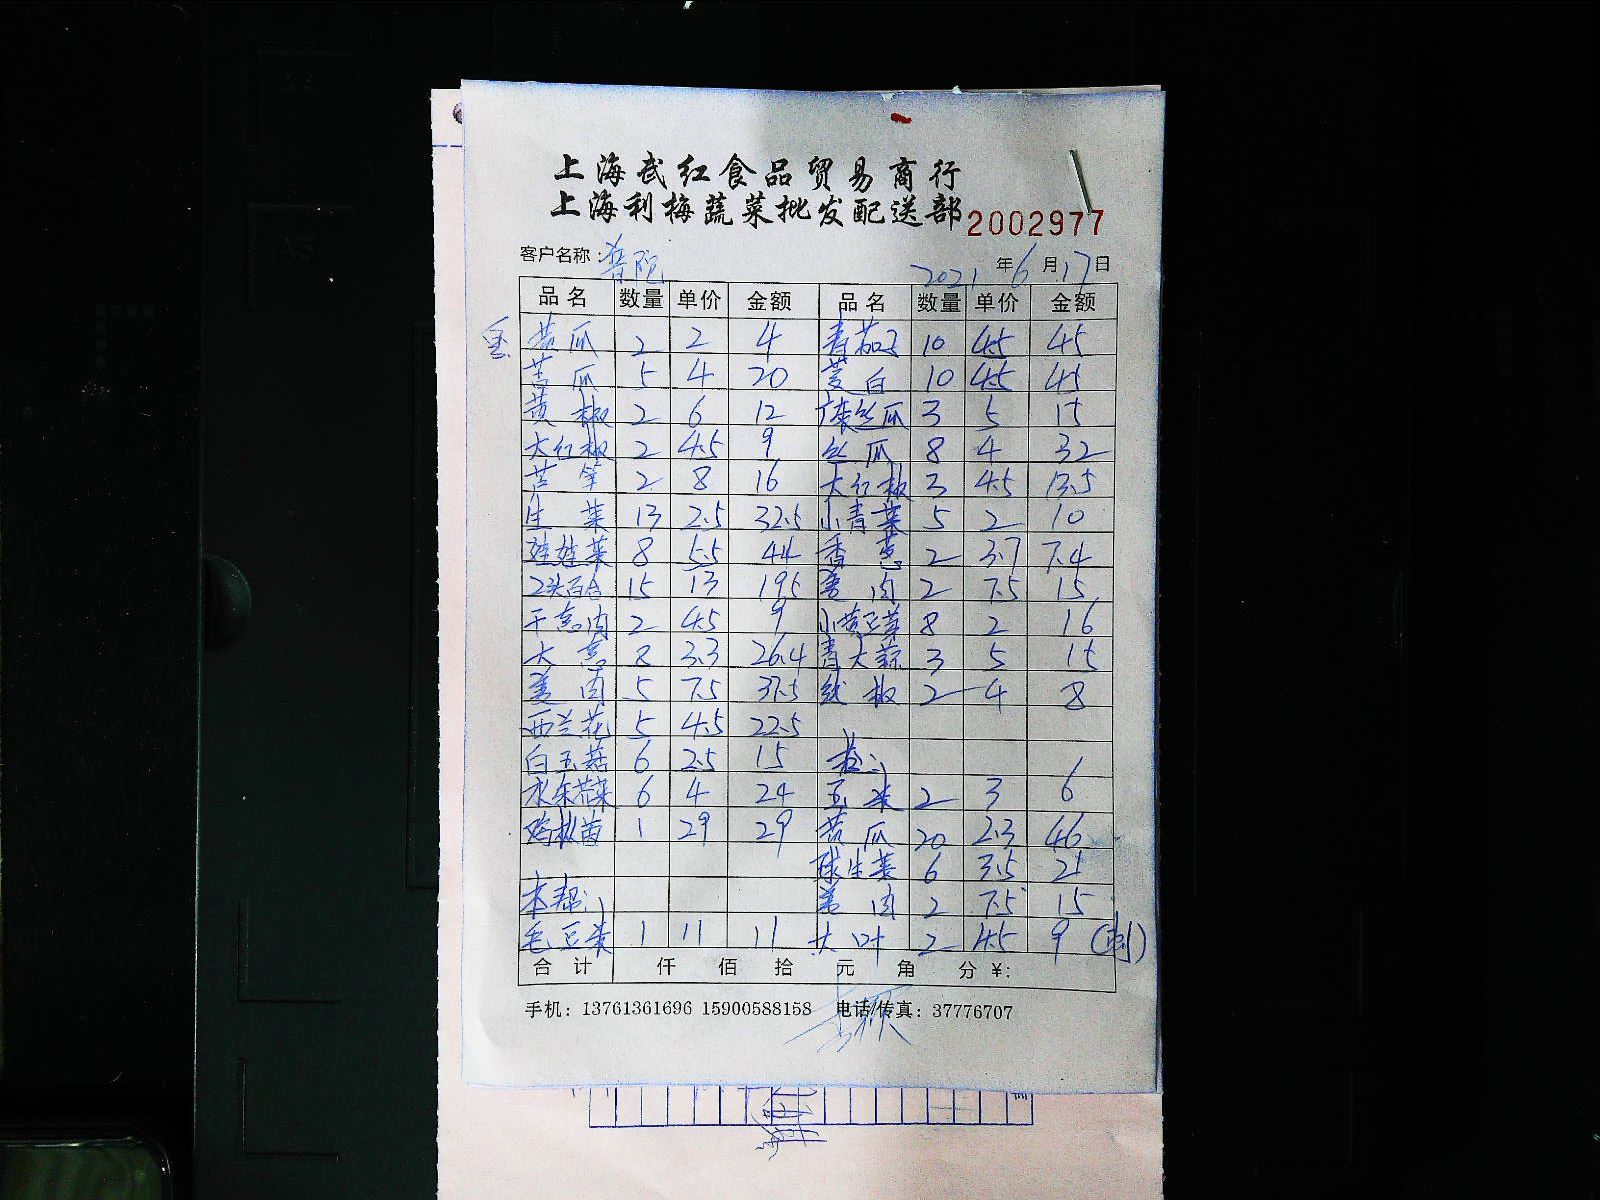 上海武红食品贸易商行
上海利梅蔬菜批发配送部 2002977
客户名称：普陀 2021年6月17日
品名 数量 单价 金额 品名 数量 单价 金额
黄瓜 2 2 4 青茄子 10 4.5 45
苦瓜 5 4 20 茭白 10 4.5 45
黄椒 2 6 12 广东丝瓜 3 5 15
大红椒 2 4.5 9 丝瓜 8 4 32
苦笋 2 8 16 大红椒 3 4.5 13.5
生菜 13 2.5 32.5 小青菜 5 2 10
娃娃菜 8 5.5 44 香葱 2 3.7 7.4
2头百合 15 13 195 姜肉 2 7.5 15
干葱肉 2 4.5 9 小黄豆芽 8 2 16
大葱 8 3.3 26.4 青大蒜 3 5 15
姜肉 5 7.5 37.5 线椒 2 4 8
西兰花 5 4.5 22.5
白玉菇 6 2.5 15
水东芥菜 6 4 24 玉米 2 3 6
鸡枞菌 1 29 29 黄瓜 20 2.3 46
球生菜 6 3.5 21
本帮： 姜肉 2 7.5 15
毛豆荚 1 11 11 大叶 2 4.5 9
合计 仟 佰 拾 元 角 分 ¥:
手机：13761361696 15900588158 电话/传真：37776707